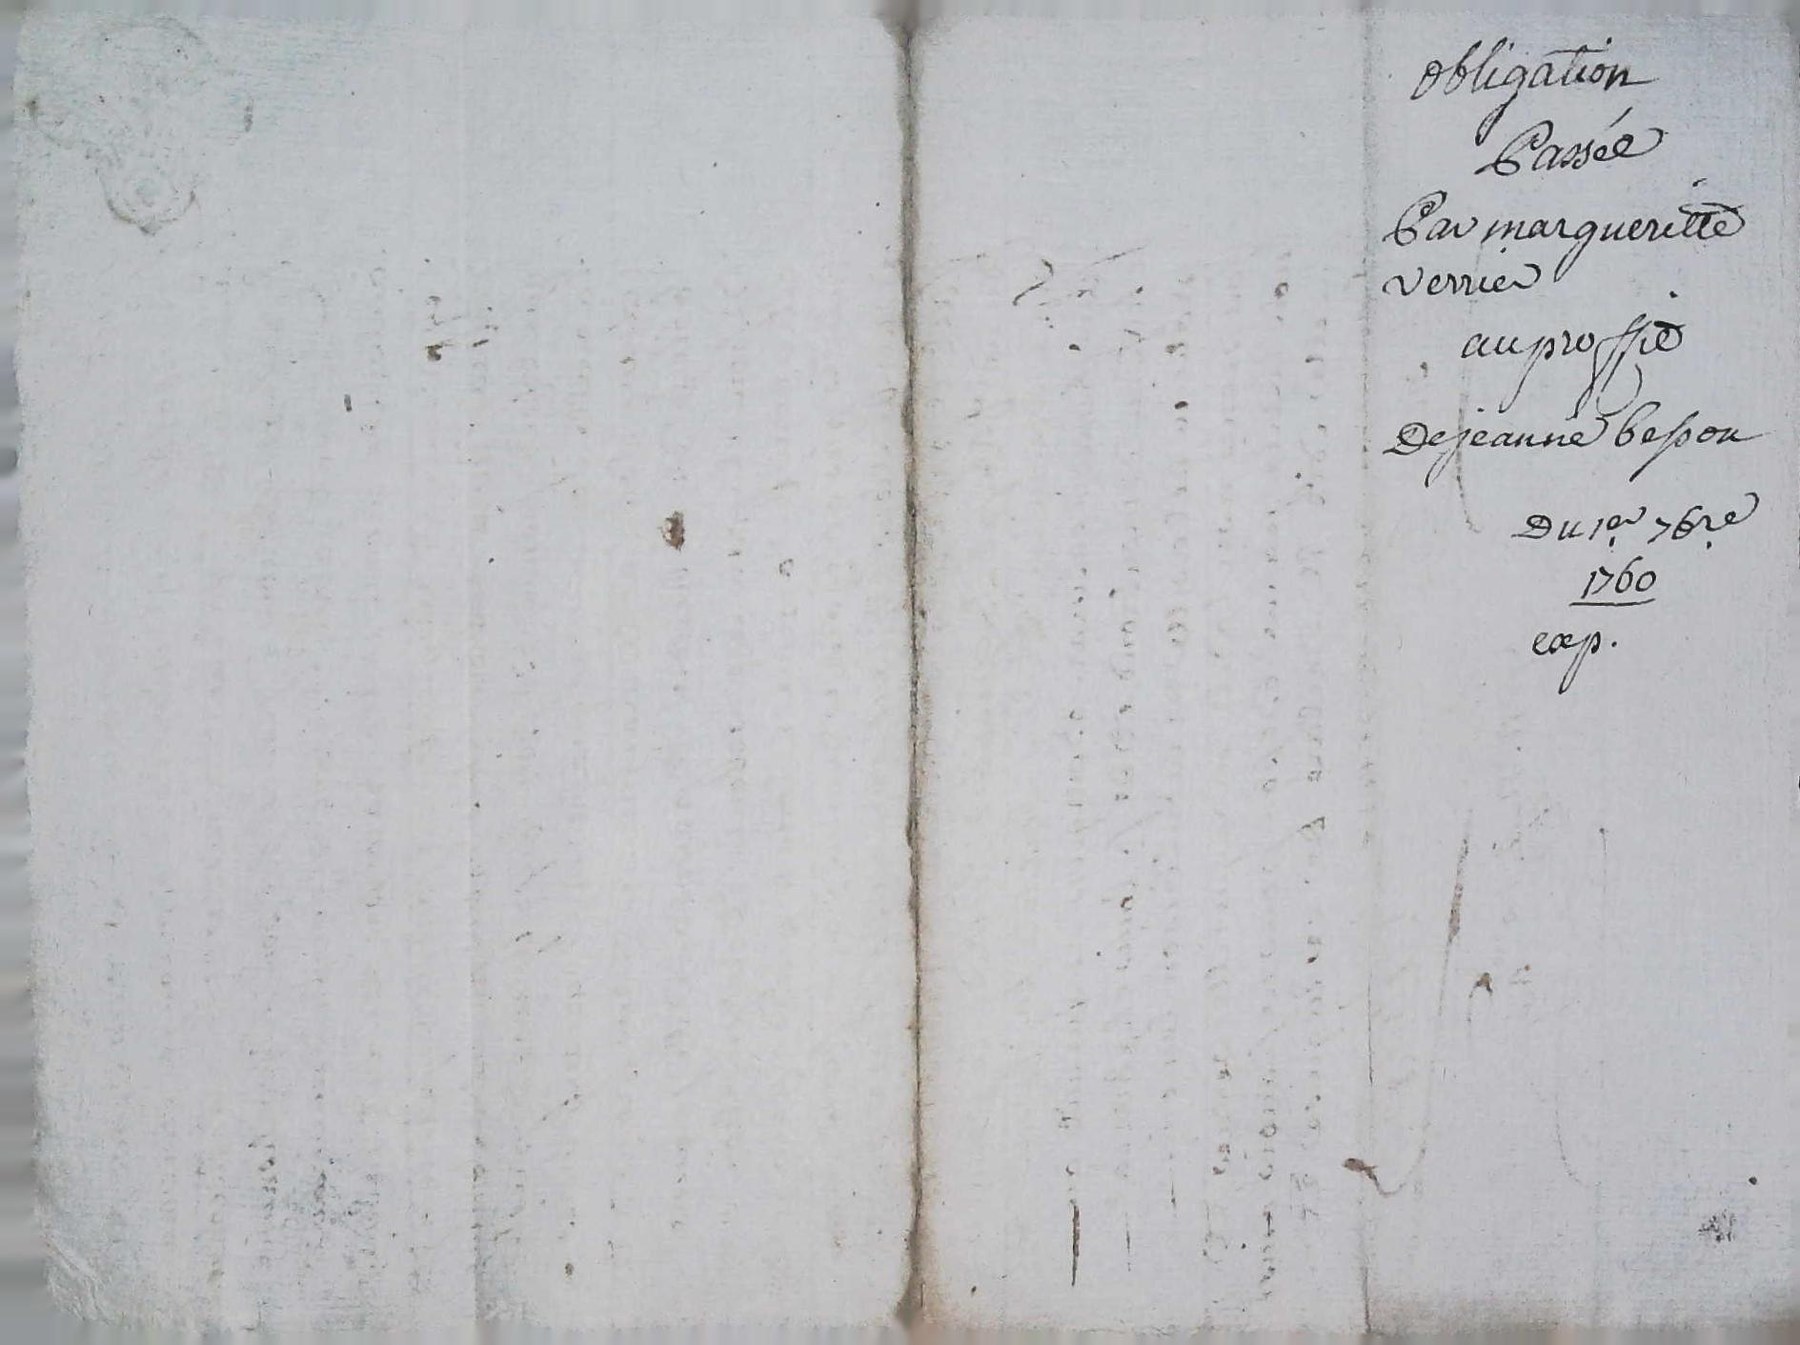 obligation
Passée
Par margueritte
verrier
au proffit
De jeanne besson
Du 1er 7bre
1760
exp.